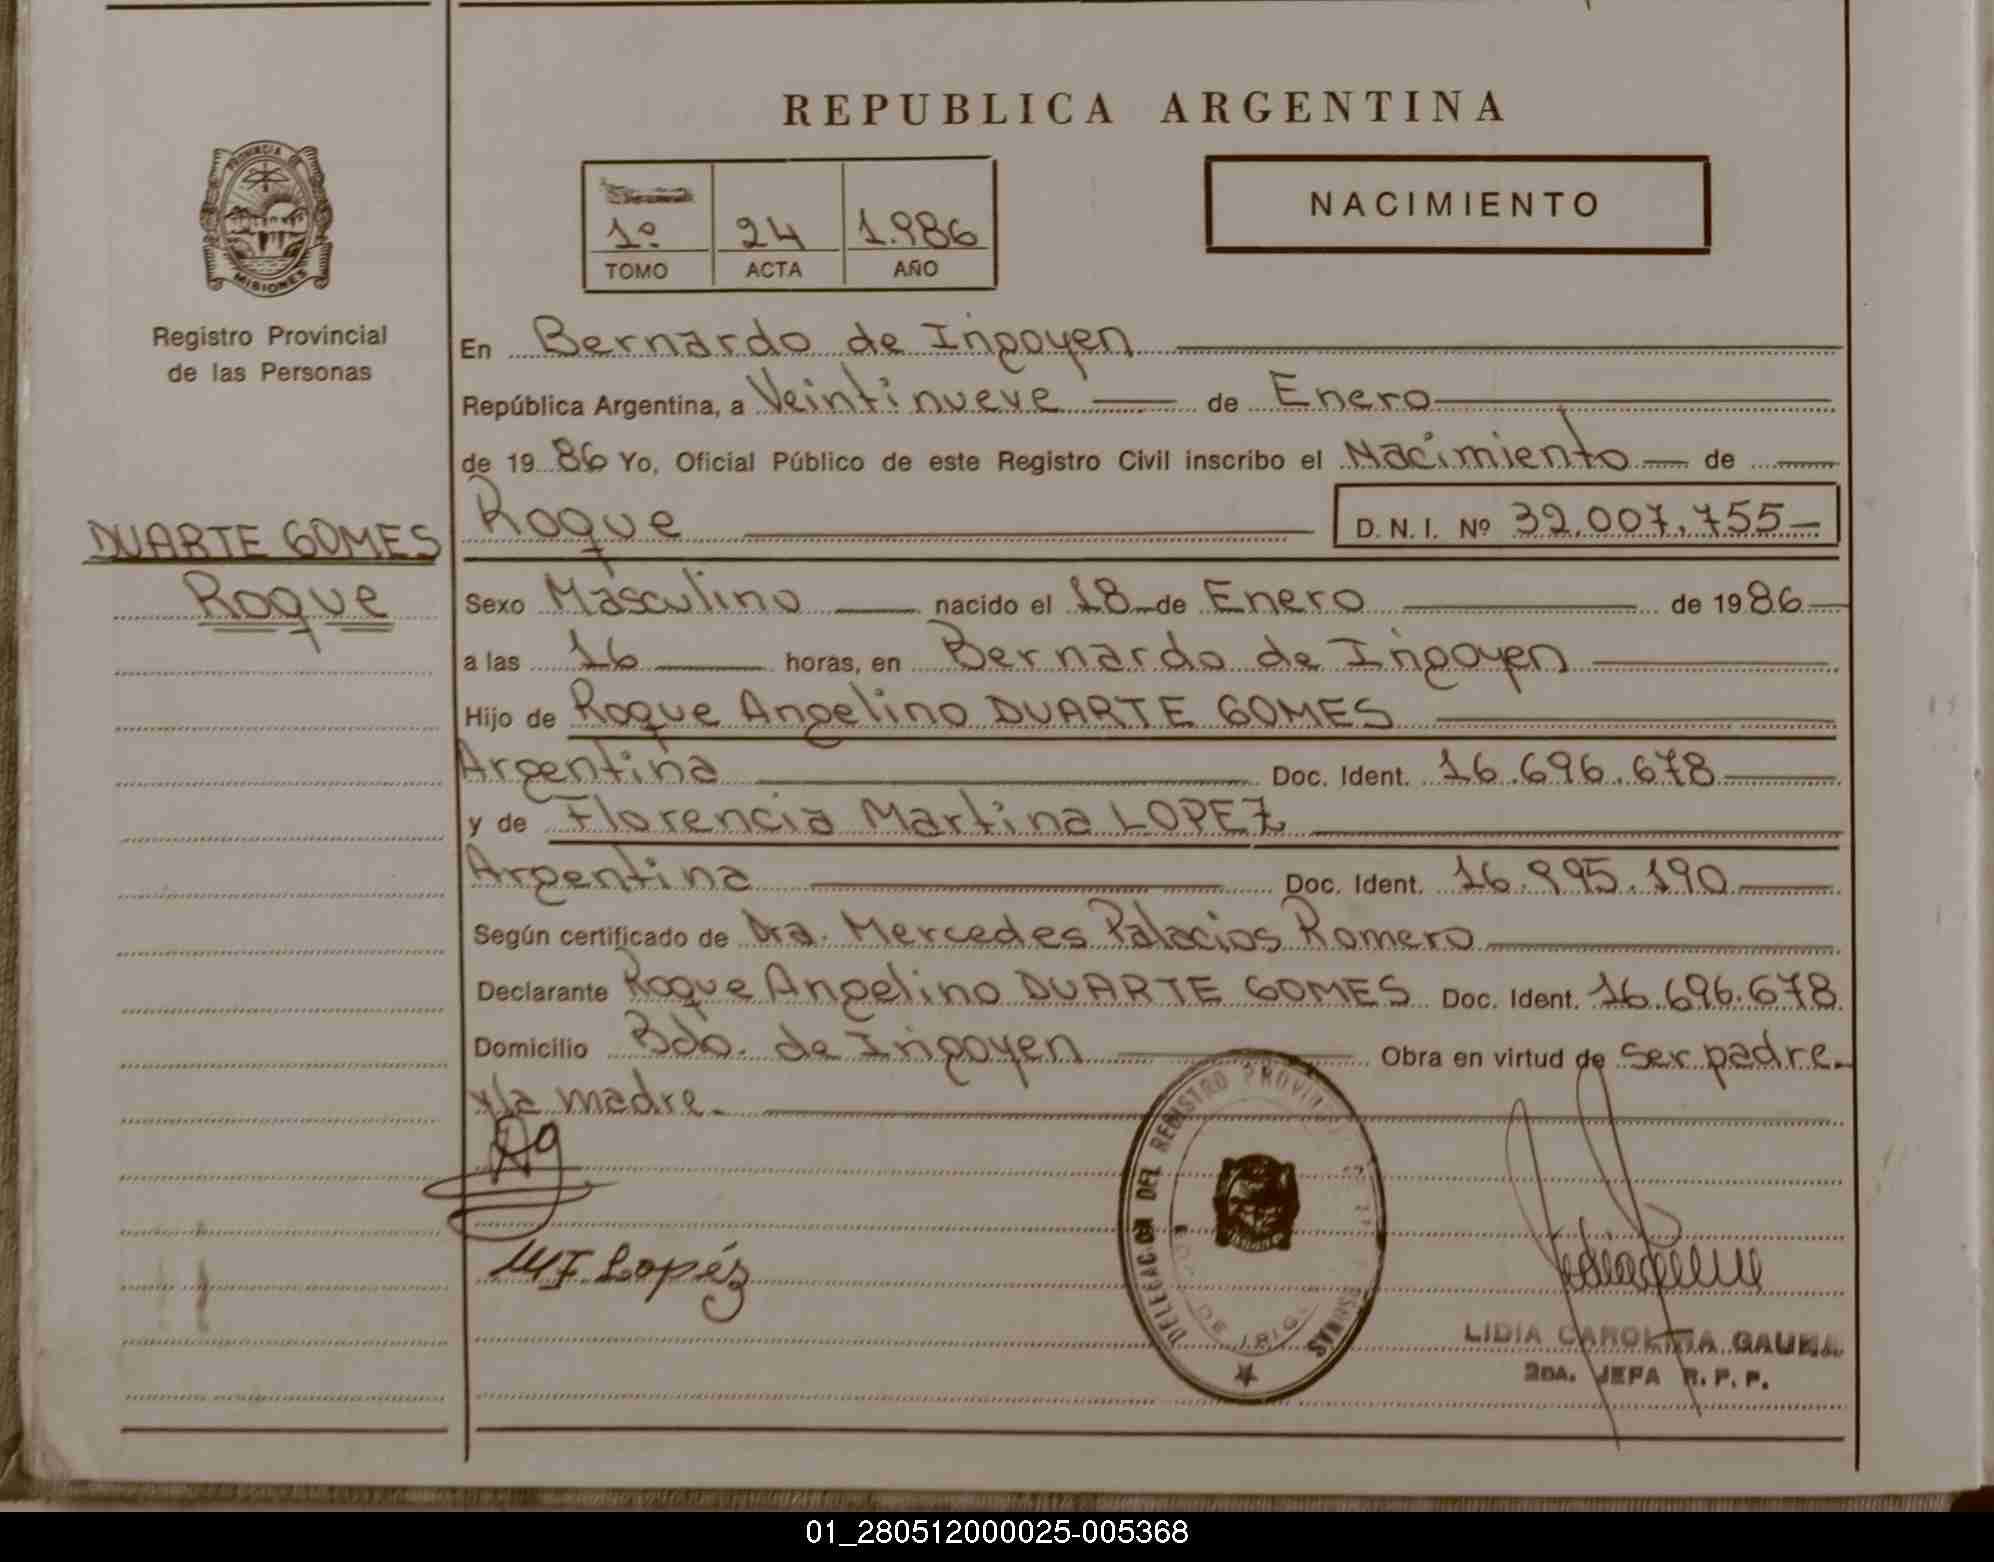 REPUBLICA ARGENTINA
PROVINCIA DE
MISIONES
Registro Provincial
de las Personas
1º 24 1.986
TOMO ACTA AÑO
NACIMIENTO
En Bernardo de Irigoyen
República Argentina, a Veintinueve de Enero
de 1986 Yo, Oficial Público de este Registro Civil inscribo el Nacimiento de
Roque D. N. I. Nº 32.007.755
DUARTE GOMES
Roque
Sexo Masculino nacido el 18 de Enero de 1986
a las 16 horas, en Bernardo de Irigoyen
Hijo de Roque Angelino DUARTE GOMES
Argentina Doc. Ident. 16.696.678
y de Florencia Martina LOPEZ
Argentina Doc. Ident. 16.995.190
Según certificado de Dra. Mercedes Palacios Romero
Declarante Roque Angelino DUARTE GOMES Doc. Ident. 16.696.678
Domicilio Bdo. de Irigoyen Obra en virtud de ser padre.
y la madre.
DELEGACION DEL REGISTRO PROVINCIAL PERSONAS
DE IRIG
MF Lopéz
LIDIA CAROLINA GAUNA
2DA. JEFA R. P. P.
01_280512000025-005368